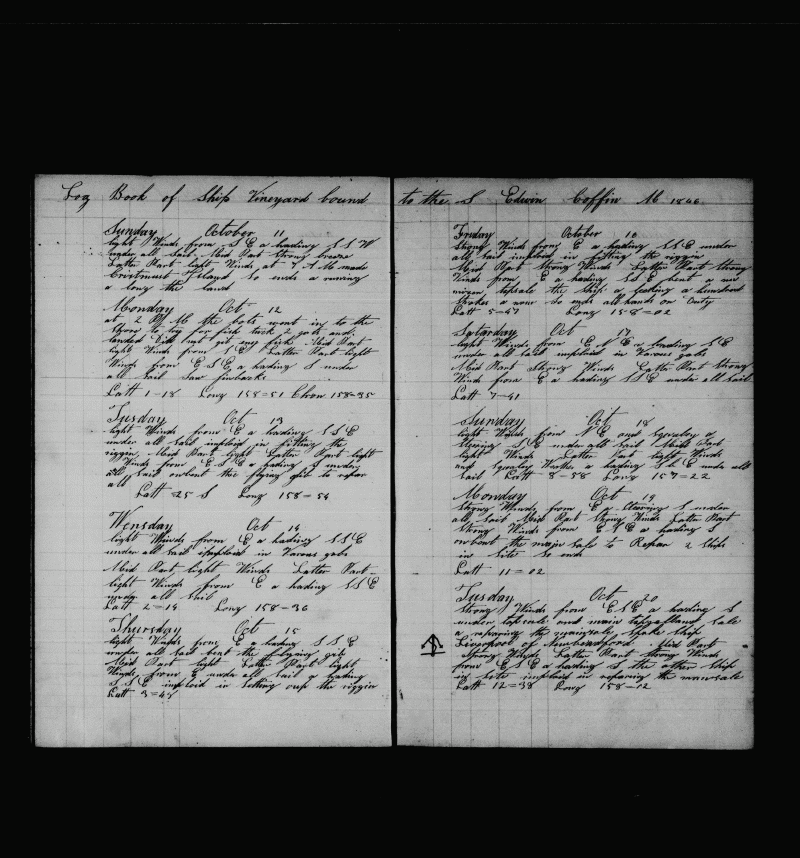 Log Book of Ship Vineyard bound
Sunday October 11
light Winds from S E a hading S S W
under all sail Mid Part Strong breeze
Latter Part light Winds at 7 A M made
Cristmust Island So ends a runing
a long the land
Monday Oct 12
at 2 P M the bots went in to the
Shore to try for fish tuck 2 gots and
landed Did not git any fish Mid Part
light Winds from S E Latter Part light
Winds from E S E a hading S under
all sail Saw finbacks
Latt 1-18 Long 158=51 Chron 158-35
Tusday Oct 13
light Winds from E a hading S S E
under all sail imploid in fitting the
riggin Mid Part light Latter Part light
Winds from E S E a hading S under
all sail onbent the flying gib to repar
all
Latt 25 S Long 158=54
Wensday Oct 14
light Winds from E a hading S S E
under all sail imploid in Varous gobs
Mid Part light Winds Latter Part
light Winds from E a hading S S E
under all sail
Latt 2=14 Long 158-36
Thursday Oct 15
light Winds from E a hading S S E
under all sail bent the flying gib
Mid Part light Latter Part light
Winds from E under all sail a hading
S S E imploid in Setting oup the riggin
Latt 3=45
to the S Edwin Coffin M 1846
Friday October 16
Strong Winds from E a hading S S E under
all sail imploid in fitting the riggin
Mid Part Strong Winds Latter Part Strong
Winds from E a hading S S E bent a nu
mizen topsale the Ship a leaking a hundard
Strokes a nour So ends all hands on Duty
Latt 5-47 Long 158-02
Satarday Oct 17
light Winds from E N E a hading S E
under all sail imploid in Varous gobs
Mid Part Strong Winds Latter Part Strong
Winds from E a hading S S E under all sail
Latt 7-41
Sunday Oct 18
light Winds from N E and Squaley a
Stering S E under all sail Midel Part
light Winds Latter Part light Winds
and Squaley Wether a hading S S E under all
sail Latt 8-58 Long 157=22
Monday Oct 19
Strong Winds from E a Stearing S under
all sail Mid Part Strong Winds Latter Part
Strong Winds from E N E a hading S
onbent the major sale to Repar 2 Ships
in Site So ends
Latt 11=02
Tusday Oct 20
Strong Winds from E S E a hading S
under topsails and main topgalland sale
a reparing the mainsale Spoke Ship
Liverpool of Newbeadford Mid Part
Strong Winds Latter Part Strong Winds
from E S E a hading S the other Ship
in site imploid in reparing the mainsale
Latt 12=38 Long 158-12